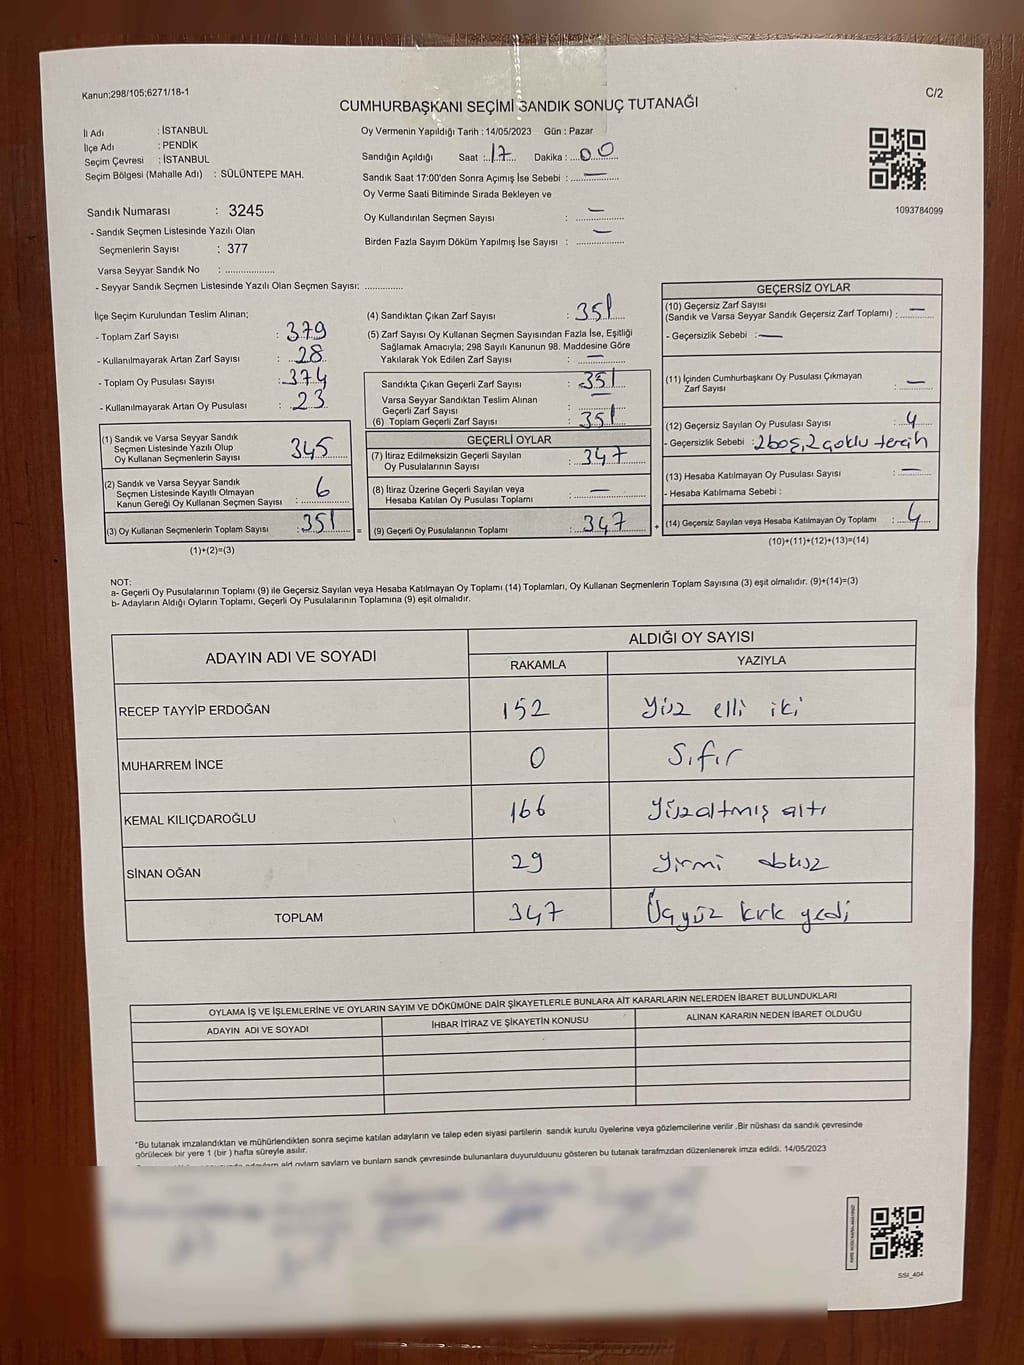 Kanun;298/105;6271/18-1
C/2
CUMHURBAŞKANI SEÇİMİ SANDIK SONUÇ TUTANAĞI
İl Adı : İSTANBUL
İlçe Adı : PENDİK
Seçim Çevresi : İSTANBUL
Seçim Bölgesi (Mahalle Adı) : SÜLÜNTEPE MAH.
Oy Vermenin Yapıldığı Tarih : 14/05/2023 Gün : Pazar
Sandığın Açıldığı Saat :..17.... Dakika :...00...
Sandık Saat 17:00'den Sonra Açımış İse Sebebi : —
Oy Verme Saati Bitiminde Sırada Bekleyen ve
Oy Kullandırılan Seçmen Sayısı : —
Birden Fazla Sayım Döküm Yapılmış İse Sayısı : —
1093784099
Sandık Numarası : 3245
- Sandık Seçmen Listesinde Yazılı Olan
Seçmenlerin Sayısı : 377
Varsa Seyyar Sandık No : ...................
- Seyyar Sandık Seçmen Listesinde Yazılı Olan Seçmen Sayısı: ...............
İlçe Seçim Kurulundan Teslim Alınan;
- Toplam Zarf Sayısı : 379
- Kullanılmayarak Artan Zarf Sayısı : 28
- Toplam Oy Pusulası Sayısı : 374
- Kullanılmayarak Artan Oy Pusulası : 23
(1) Sandık ve Varsa Seyyar Sandık
Seçmen Listesinde Yazılı Olup
Oy Kullanan Seçmenlerin Sayısı 345
(2) Sandık ve Varsa Seyyar Sandık
Seçmen Listesinde Kayıtlı Olmayan
Kanun Gereği Oy Kullanan Seçmen Sayısı : 6
(3) Oy Kullanan Seçmenlerin Toplam Sayısı : 351
(1)+(2)=(3)
(4) Sandıktan Çıkan Zarf Sayısı : 351
(5) Zarf Sayısı Oy Kullanan Seçmen Sayısından Fazla İse, Eşitliği
Sağlamak Amacıyla; 298 Sayılı Kanunun 98. Maddesine Göre
Yakılarak Yok Edilen Zarf Sayısı : —
Sandıkta Çıkan Geçerli Zarf Sayısı : 351
Varsa Seyyar Sandıktan Teslim Alınan
Geçerli Zarf Sayısı : —
(6) Toplam Geçerli Zarf Sayısı : 351
GEÇERLİ OYLAR
(7) İtiraz Edilmeksizin Geçerli Sayılan
Oy Pusulalarının Sayısı : 347
(8) İtiraz Üzerine Geçerli Sayılan veya
Hesaba Katılan Oy Pusulası Toplamı : —
= (9) Geçerli Oy Pusulalarının Toplamı : 347
GEÇERSİZ OYLAR
(10) Geçersiz Zarf Sayısı
(Sandık ve Varsa Seyyar Sandık Geçersiz Zarf Toplamı) : —
- Geçersizlik Sebebi : —
(11) İçinden Cumhurbaşkanı Oy Pusulası Çıkmayan
Zarf Sayısı : —
(12) Geçersiz Sayılan Oy Pusulası Sayısı : 4
- Geçersizlik Sebebi : 2 boş, 2 çoklu tercih
(13) Hesaba Katılmayan Oy Pusulası Sayısı : —
- Hesaba Katılmama Sebebi :
+ (14) Geçersiz Sayılan veya Hesaba Katılmayan Oy Toplamı : 4
(10)+(11)+(12)+(13)=(14)
NOT:
a- Geçerli Oy Pusulalarının Toplamı (9) ile Geçersiz Sayılan veya Hesaba Katılmayan Oy Toplamı (14) Toplamları, Oy Kullanan Seçmenlerin Toplam Sayısına (3) eşit olmalıdır. (9)+(14)=(3)
b- Adayların Aldığı Oyların Toplamı, Geçerli Oy Pusulalarının Toplamına (9) eşit olmalıdır.
ADAYIN ADI VE SOYADI ALDIĞI OY SAYISI
RAKAMLA YAZIYLA
RECEP TAYYİP ERDOĞAN 152 Yüz elli iki
MUHARREM İNCE 0 Sıfır
KEMAL KILIÇDAROĞLU 166 Yüzaltmış altı
SİNAN OĞAN 29 Yirmi dokuz
TOPLAM 347 Üçyüz kırk yedi
OYLAMA İŞ VE İŞLEMLERİNE VE OYLARIN SAYIM VE DÖKÜMÜNE DAİR ŞİKAYETLERLE BUNLARA AİT KARARLARIN NELERDEN İBARET BULUNDUKLARI
ADAYIN ADI VE SOYADI İHBAR İTİRAZ VE ŞİKAYETİN KONUSU ALINAN KARARIN NEDEN İBARET OLDUĞU
*Bu tutanak imzalandıktan ve mühürlendikten sonra seçime katılan adayların ve talep eden siyasi partilerin sandık kurulu üyelerine veya gözlemcilerine verilir .Bir nüshası da sandık çevresinde
görülecek bir yere 1 (bir ) hafta süreyle asılır.
bulunanlara duyurulduunu gösteren bu tutanak tarafmzdan düzenlenerek imza edildi. 14/05/2023
SSI_404